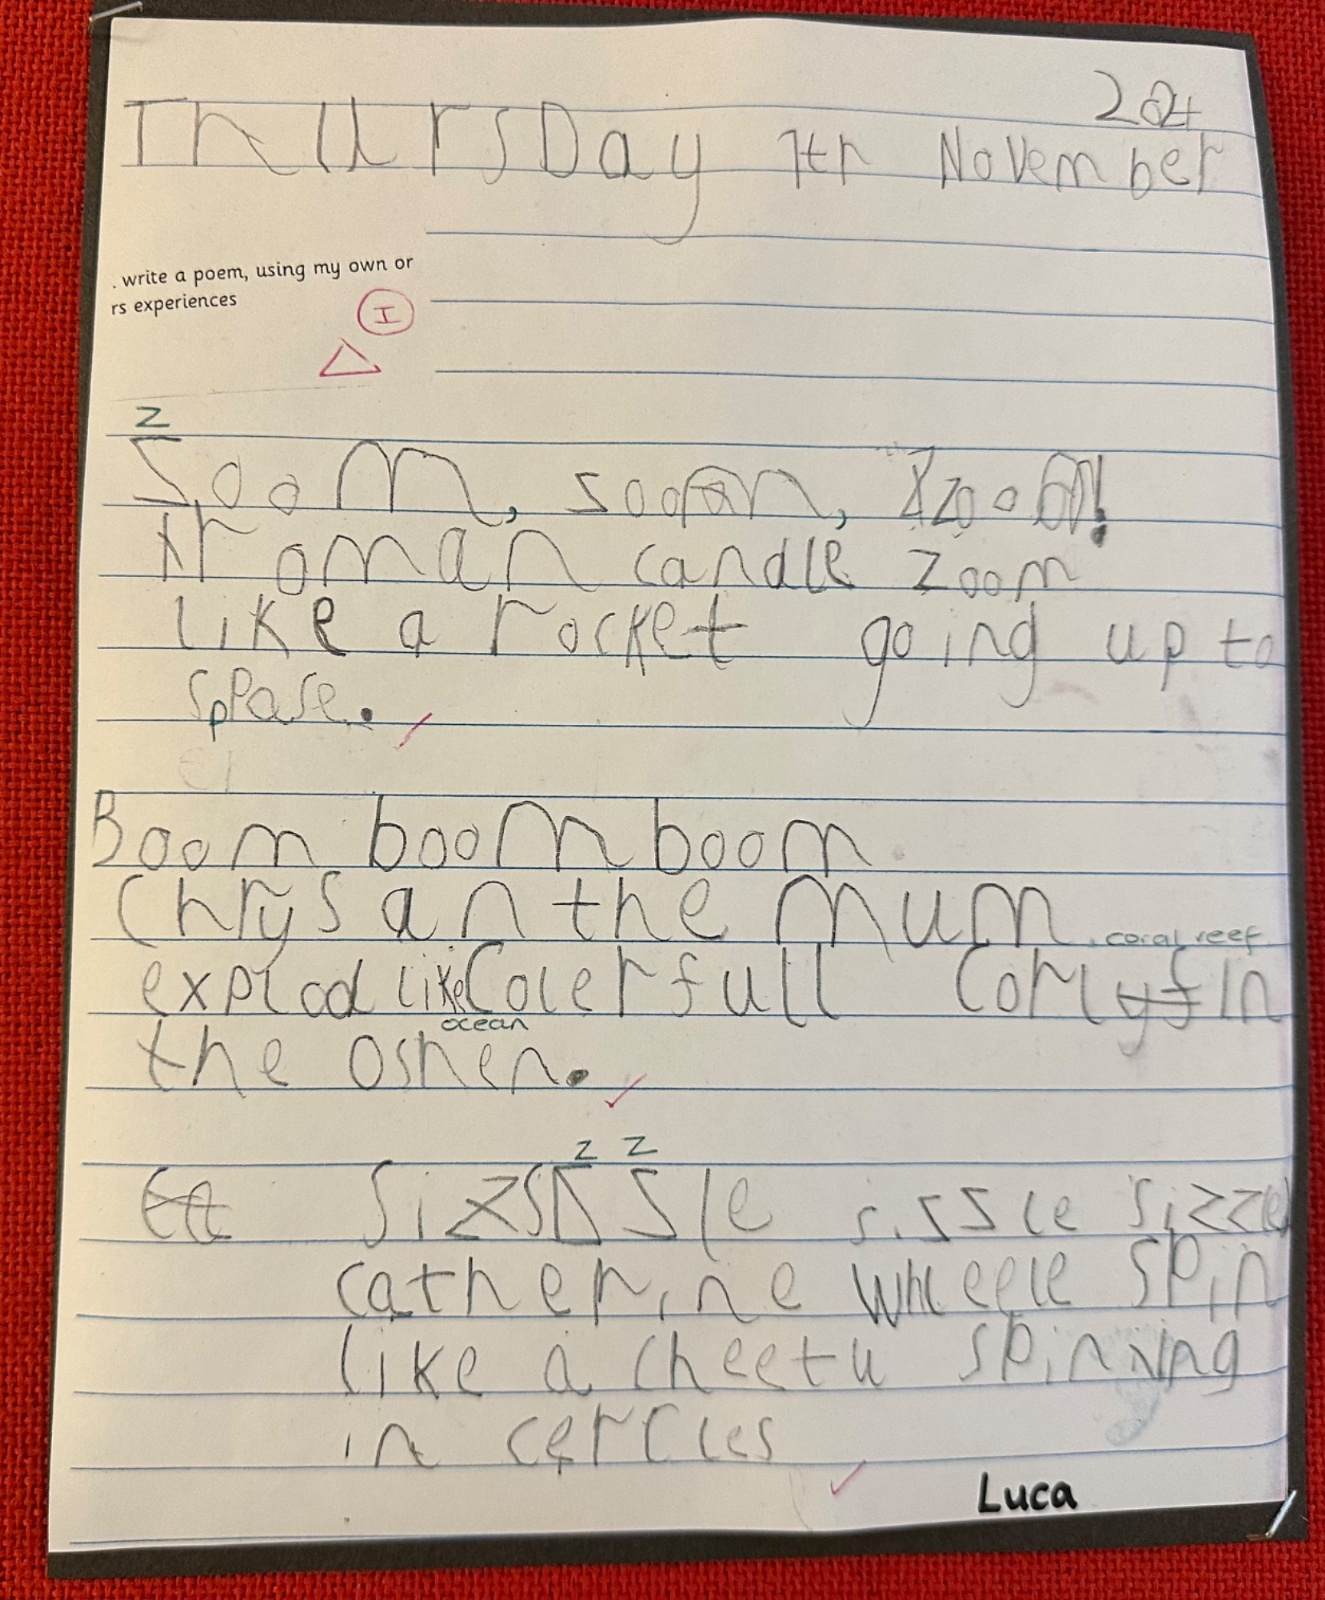 204
Thursday 7th November
. write a poem, using my own or
rs experiences
I
Z
Soom, sooom, zoom!
roman candle zoom
like a rocket going up to
spase.
Boom boom boom
Chrysanthemum
coral reef
explod like Colerfull Corlyf in
ocean
the oshen.
z z
sissle sizzel
catherine wheele spin
like a cheetu spinning
in cercles
Luca